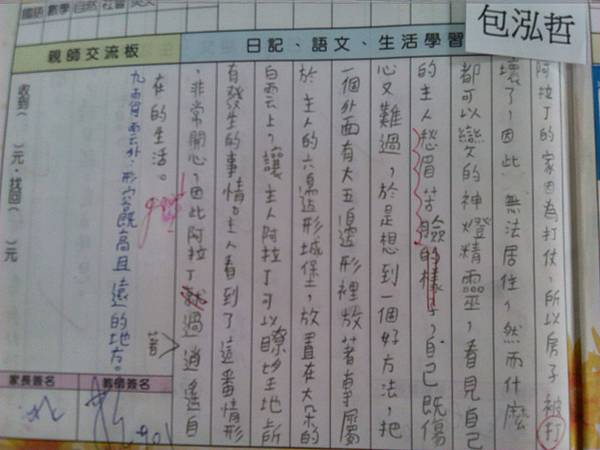 國語 數學 自然 社會 英文
包泓哲
日記、語文、生活學習
親師交流板
阿拉丁的家因為打仗，所以房子被打
壞了，因此，無法居住，然而什麼
都可以變的神燈精靈，看見自己
的主人愁眉苦臉的樣子，自己既傷
心又難過，於是想到一個好方法，把
一個外面有大五邊形裡放著專屬
於主人的六邊形城堡，放置在大朵的
白雲上，讓主人阿拉丁可以瞭望土地上所
有發生的事情。主人看到了這番情形
，非常開心，因此阿拉丁就過逍遙自
著
在的生活。
九霄雲外：形容既高且遠的地方。
收到（ ）元，找回（ ）元
家長簽名
教師簽名